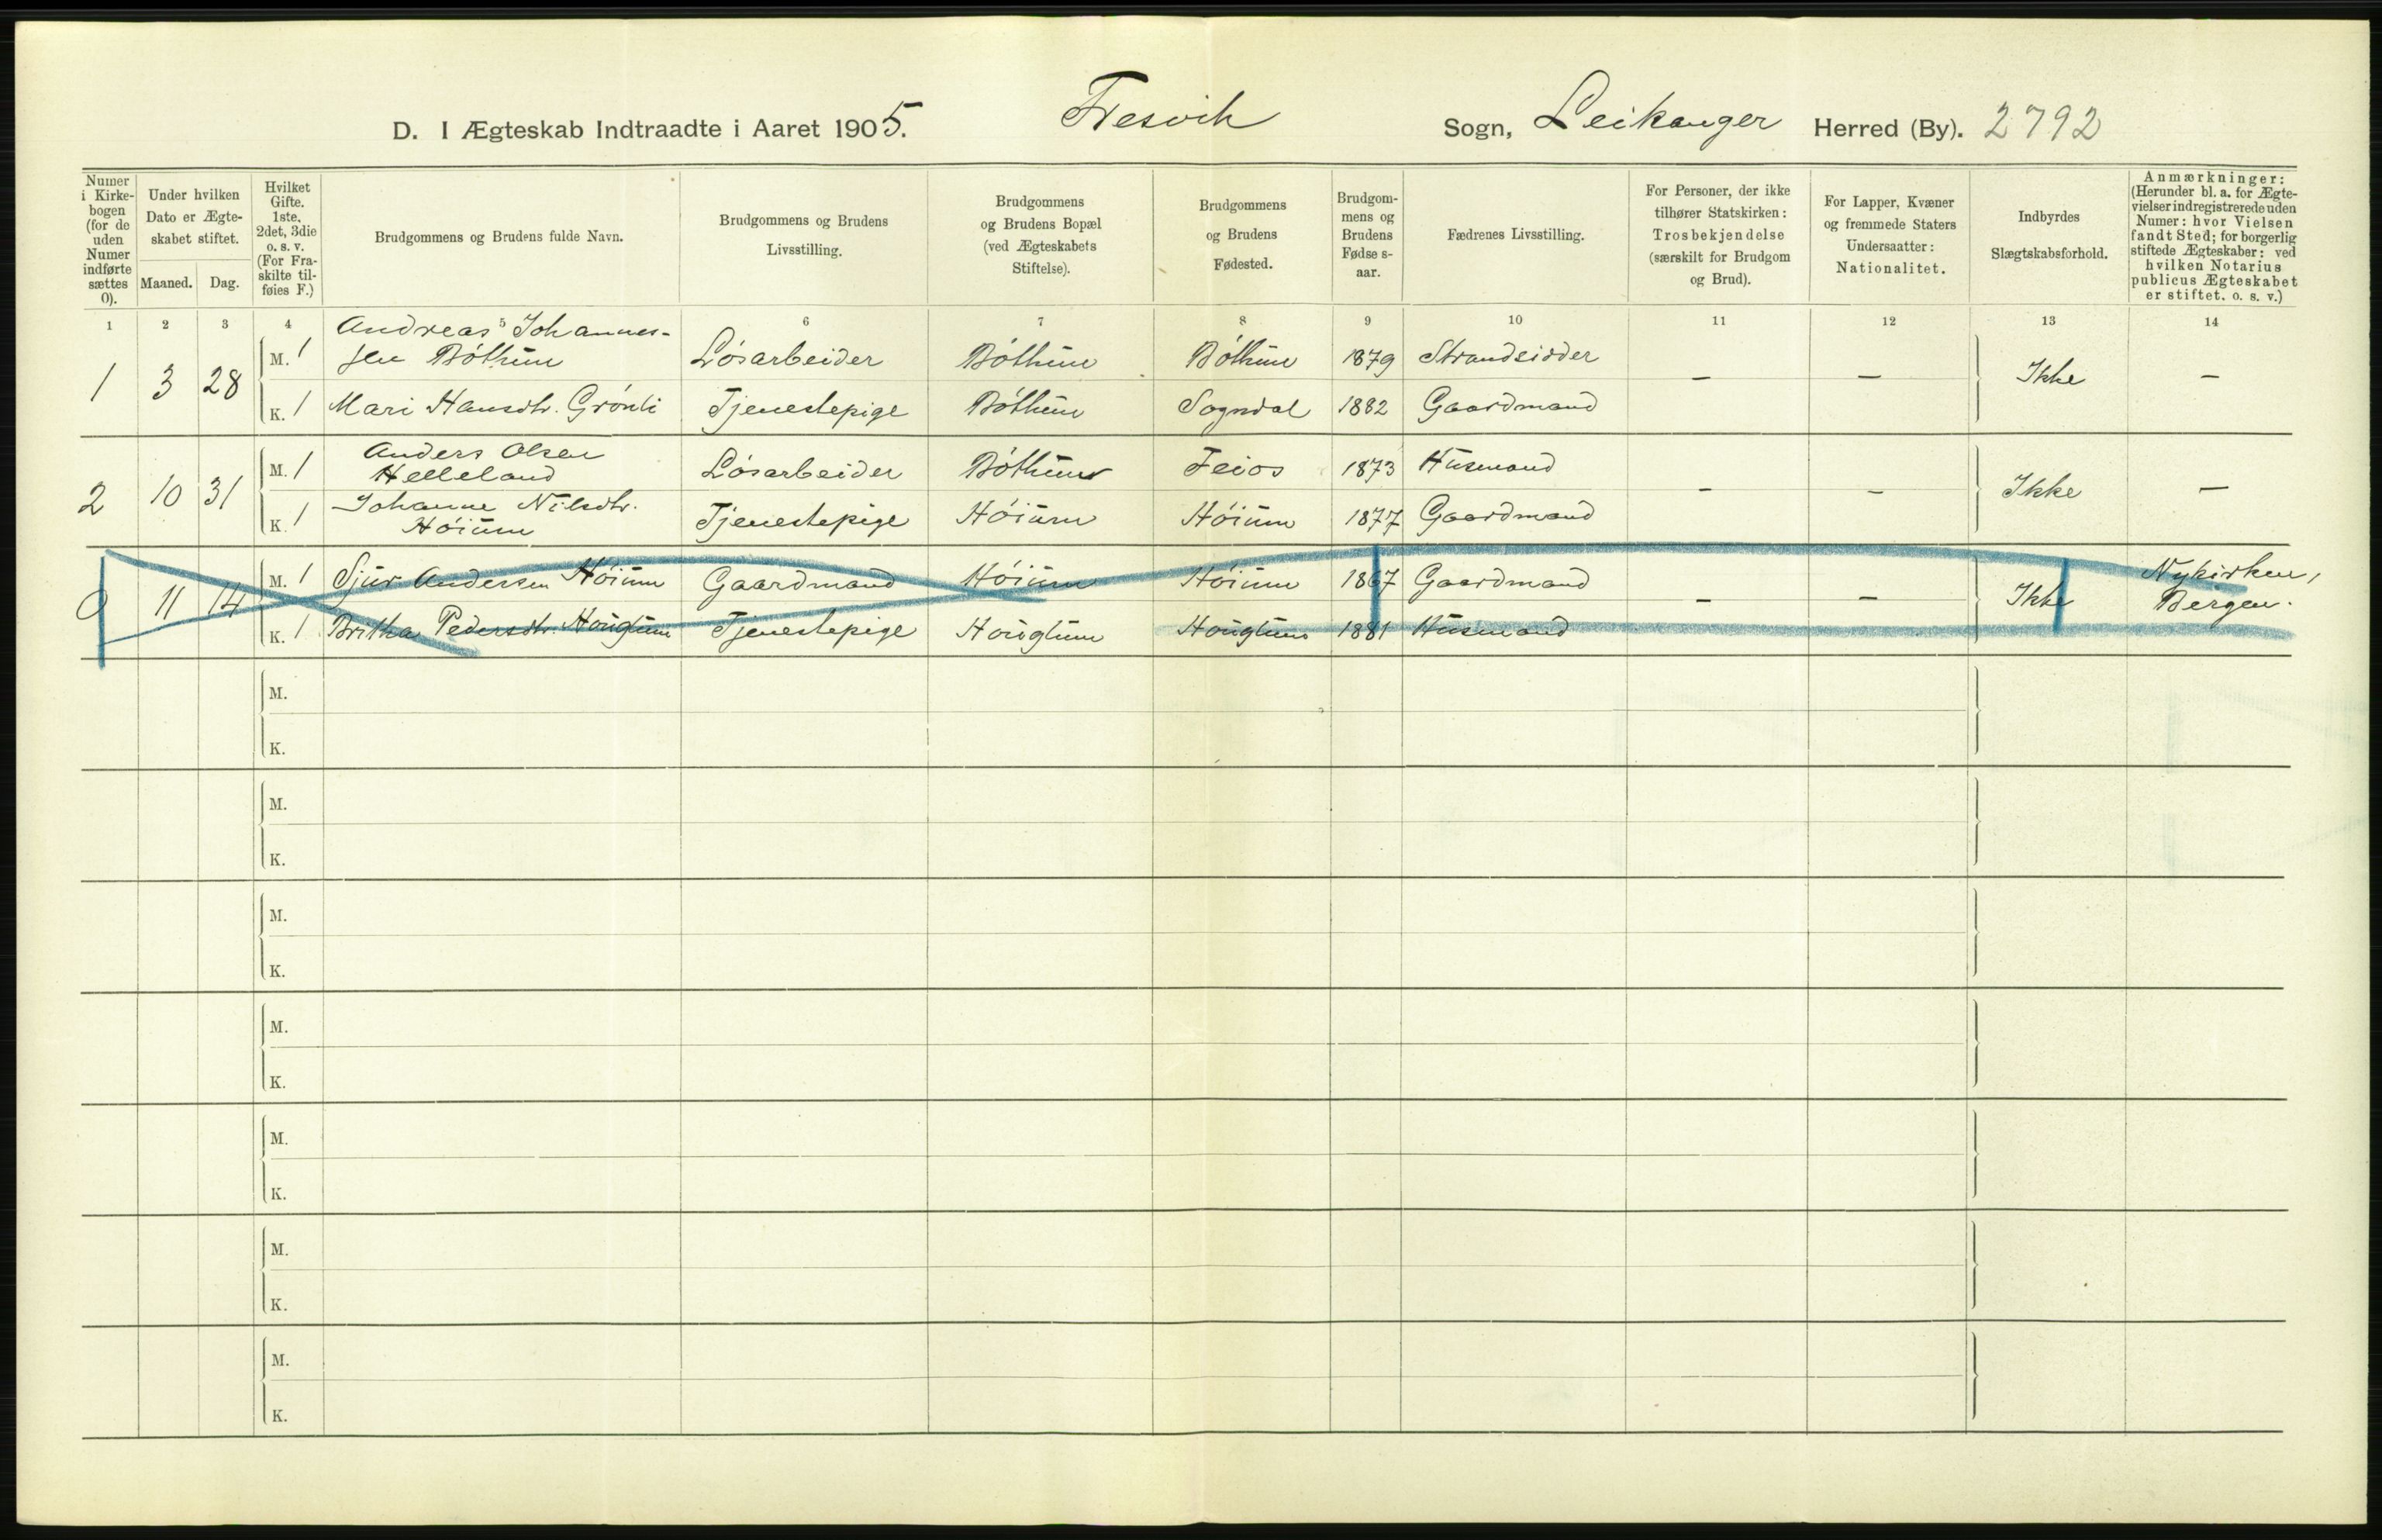 D. I Ægteskab Indtraadte i Aaret 1905. Fresvik Sogn, Leikanger Herred (By). 2792
Numer i Kirkebogen (for de uden Numer indførte sættes 0).
Under hvilken Dato er Ægteskabet stiftet.
Maaned. Dag.
Hvilket Gifte. 1ste, 2det, 3die o. s. v. (For Fraskilte tilføies F.)
Brudgommens og Brudens fulde Navn.
Brudgommens og Brudens Livsstilling.
Brudgommens og Brudens Bopæl (ved Ægteskabets Stiftelse).
Brudgommens og Brudens Fødested.
Brudgommens og Brudens Fødselsaar.
Fædrenes Livsstilling.
For Personer, der ikke tilhører Statskirken: Trosbekjendelse (særskilt for Brudgom og Brud).
For Lapper, Kvæner og fremmede Staters Undersaatter: Nationalitet.
Indbyrdes Slægtskabsforhold.
Anmærkninger: (Herunder bl. a. for Ægtevielser indregistrerede uden Numer: hvor Vielsen fandt Sted; for borgerlig stiftede Ægteskaber: ved hvilken Notarius publicus Ægteskabet er stiftet. o. s. v.)
1 2 3 4 5 6 7 8 9 10 11 12 13 14
1 3 28 M. 1 Andreas Johannessen Bóthum Lósarbeider Bóthum Bóthum 1879 Strandsidder – – Ikke –
K. 1 Mari Hansdtr. Grónli Tjenestepige Bóthum Sogndal 1882 Gaardmand
2 10 31 M. 1 Anders Olsen Helleland Lósarbeider Bóthum Feios 1873 Husmand – – Ikke –
K. 1 Johanne Nilsdtr. Hóium Tjenestepige Hóium Hóium 1877 Gaardmand
0 11 14 M. 1 Sjur Andersen Hóium Gaardmand Hóium Hóium 1867 Gaardmand – – Ikke Nykirken, Bergen.
K. 1 Britha Pedersdtr. Hougtum Tjenestepige Hougtum Hougtum 1881 Husmand
M.
K.
M.
K.
M.
K.
M.
K.
M.
K.
M.
K.
M.
K.